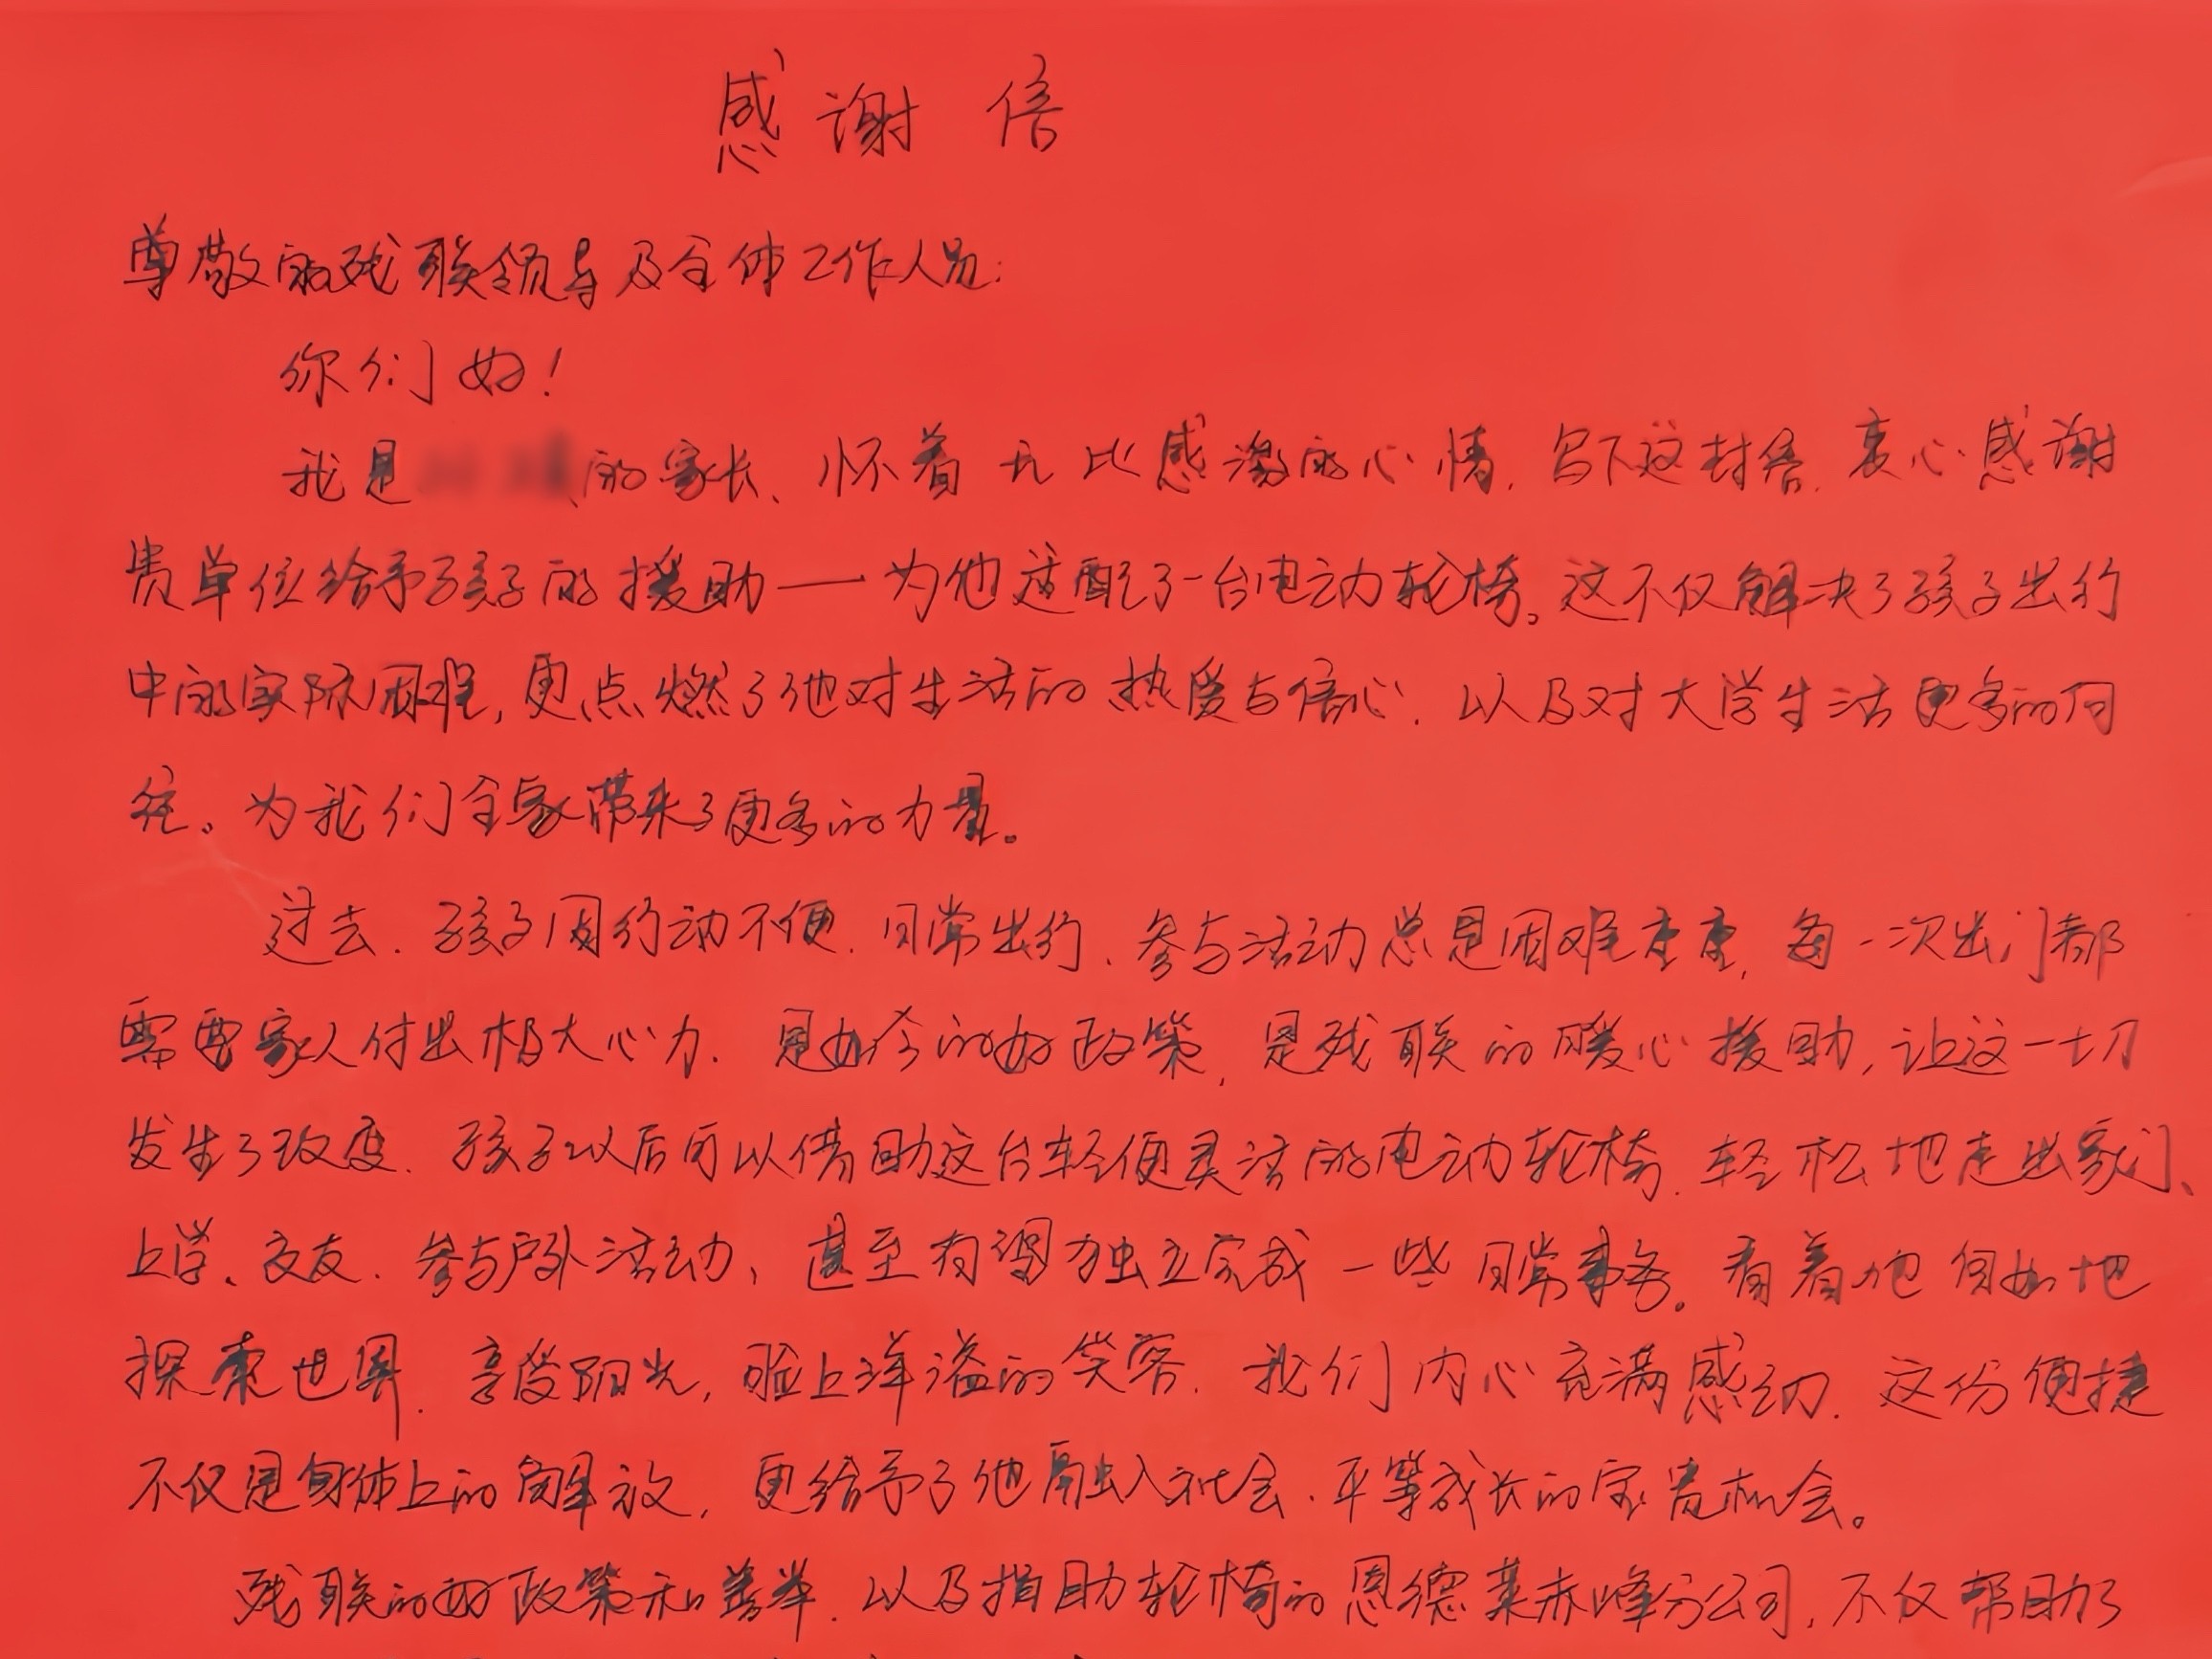 感谢信
尊敬的残联领导及全体工作人员:
你们好!
我是 的家长、怀着无比感激的心情,写下这封信,衷心感谢
贵单位给予孩子的援助——为他适配了一台电动轮椅。这不仅解决了孩子出行
中的实际困难,更点燃了他对生活的热爱与信心,以及对大学生活更多的向
往。为我们全家带来了更多的力量。
过去,孩子因行动不便,日常出行、参与活动总是困难重重,每一次出门都
需要家人付出极大心力。是如今的好政策,是残联的暖心援助,让这一切
发生了改变。孩子以后可以借助这台轻便灵活的电动轮椅,轻松地走出家门、
上学、交友、参与户外活动,甚至有望独立完成一些日常事务。看着他自如地
探索世界,享受阳光,脸上洋溢的笑容,我们内心充满感动。这份便捷
不仅是身体上的解放,更给予了他融入社会、平等成长的宝贵机会。
残联的好政策和善举,以及捐助轮椅的恩德莱赤峰分公司,不仅帮助了